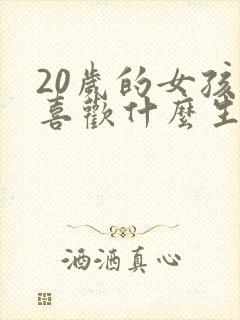 20歲的女孩
喜歡什麼生
洒洒真心